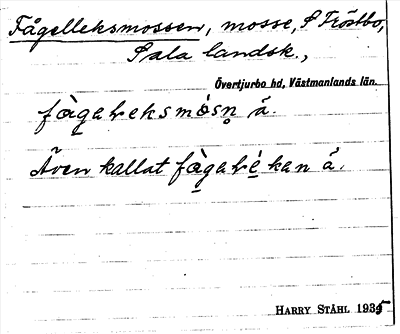 Fågelleksmossen, mosse, S Fröstbo,
Sala landsk.,
Övertjurbo hd, Västmanlands län.
fàgaleksmósn̥ ä.
Även kallat fàgalékan ä.
HARRY STÅHL 1935